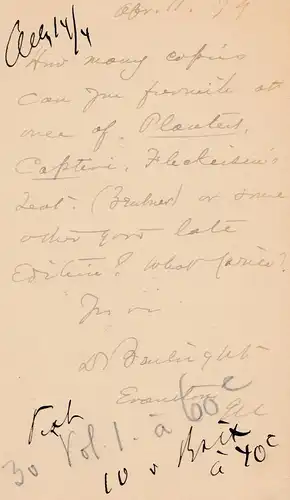 Apr. 11. 79
14/4
How many copies
can you furnish at
once of Plautus,
Captivi, Fleckeisen's
Text. (Teubner) or some
other good late
Edition? What price?
D Bonbright
Evanston Ill
30 Vol. 1. à 60c
10 v Brix
à 40c